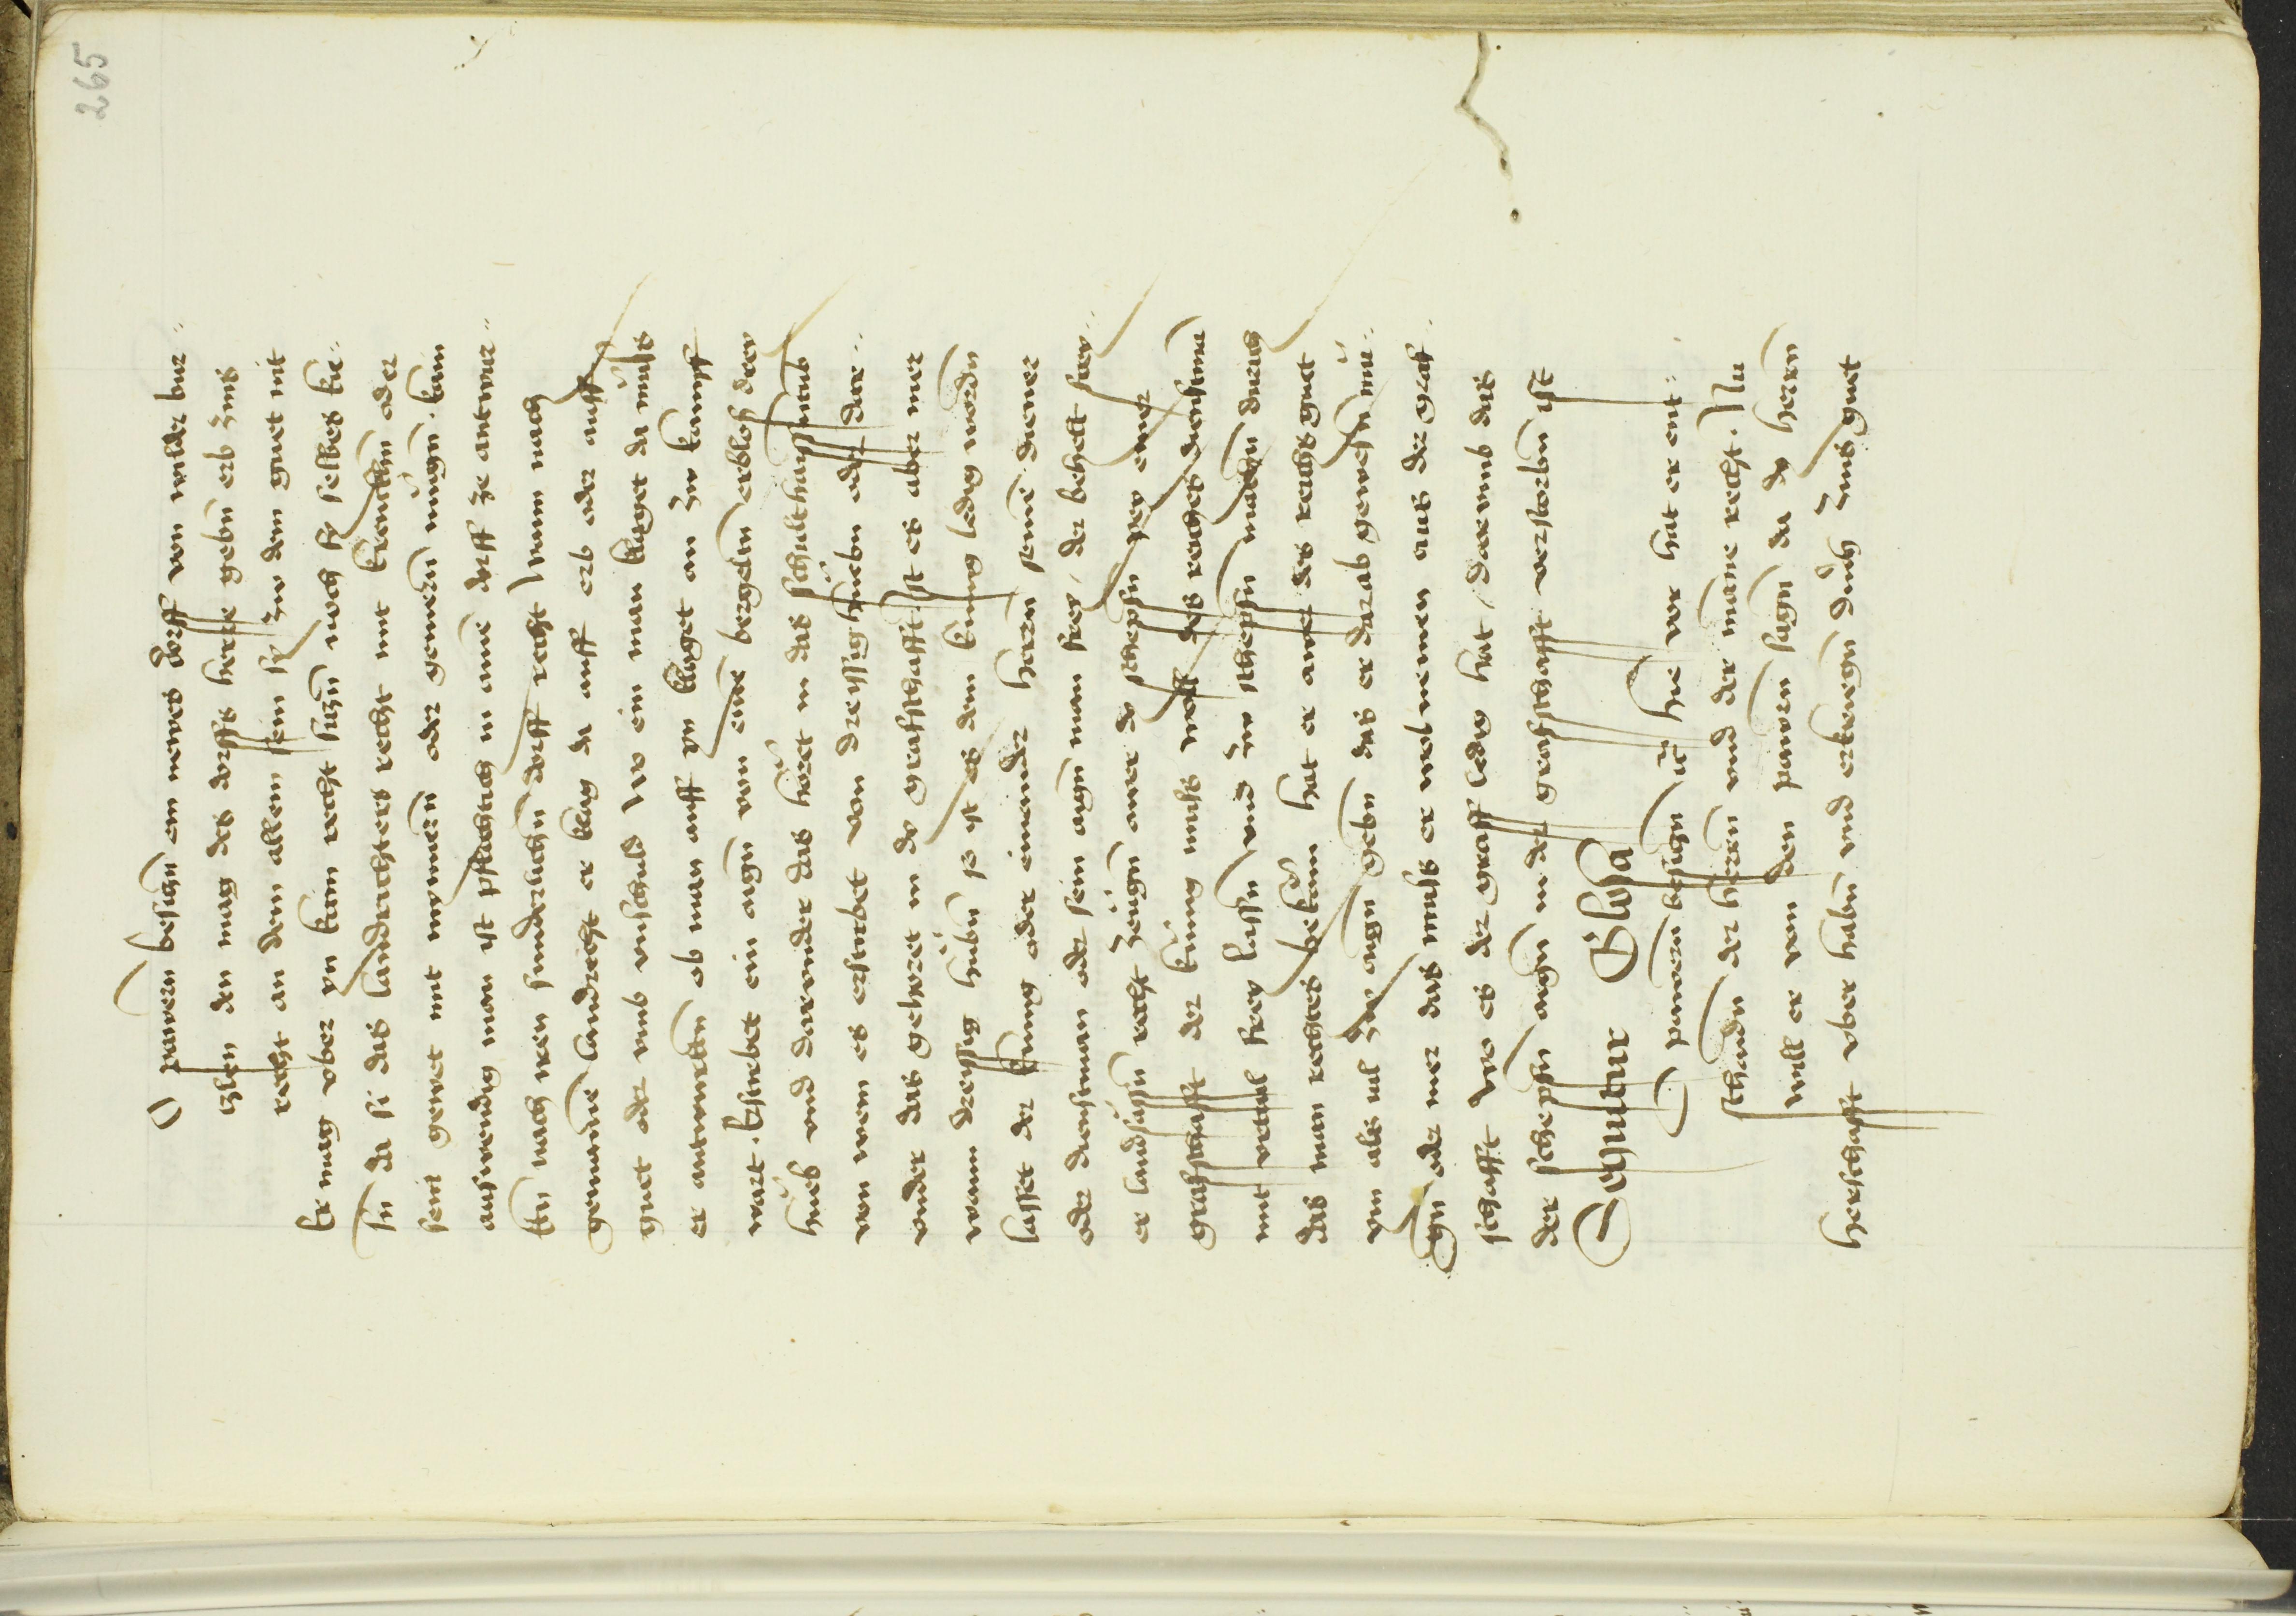 265
O pawern besiczn ein newes dorff von wilder bur=
czlen den mag des dorffs herre gebn erb zins
recht an dem allem sein sy zw dem guet nit
Er mag vber yn kain recht siczn noch sy selbes kie=
sn da si das landrichters recht mit krencken oder
sein gewet mit mynnern oder gemern mügn. kain
auswendig man ist pflichtich in aine dorff ze antwur=
ttn nach iren sunderlichn dorff recht Wann nach
gemaine landrecht er klag da auff erb oder auff
guet oder vmb vnschuld Wo ein man klaget da muss
er antwurttn ob man auff yn klaget an zw kampff
wart. Erstirbet ein aign von eine bergelten erblos drey
hueb vnd darunder das höret in das schulthaissntumb
von wem es erstirbet von dreyssig huebn oder dar=
vnder das gehoret in dy graffschafft. ist es aber mer
wann dreyssig hübn so ist es dem kunig ledig wordn
lasset der kunig oder einander herren seine diener
oder dienstman oder sein aign man frey / der behelt frey=
er landsässn recht zeügn awer dy schepfn yr ainer
graffschafft der künig muss woll des reiches dienstman
mit vrtail frey lassn vnd zw schepfn machn durch
das man rechtes bekum hat er awer des reichs guet
ym als vil zw aign gebn das er darab gewesn mü=
gn oder mer das muss er wol nemen aus der graf=
schafft Wo es der graff ledig hat / darumb das
der schepfn aign in der graffschafft verstorbn ist
Sequitur Glosa
O pawern besiczn ic hie vor hat er ent=
schaidn der herren vnd der manne recht. Nu
will er von den pawrn sagn da dy herrn
herschafft vber habn vnd erkriegn durch zins guet